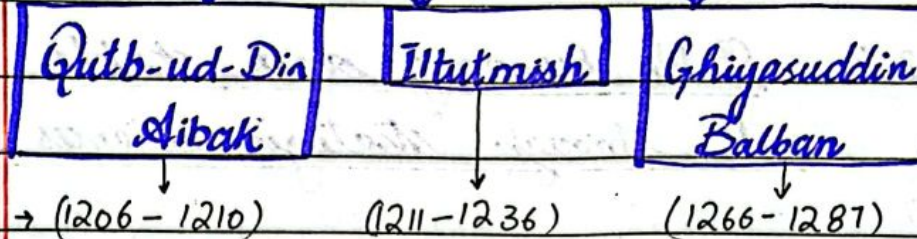 Qutb-ud-Din Aibak
Iltutmish
Ghiyasuddin Balban
→ (1206 - 1210)
(1211 - 1236)
(1266 - 1287)